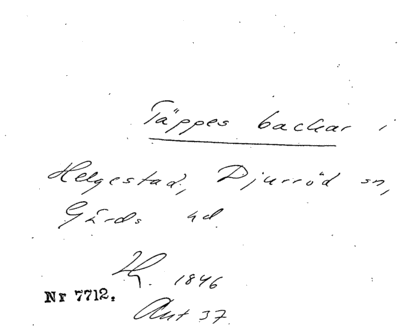 Täppes backar i
Helgestad, Djurröd sn,
Gärds hd.
1846
Nr 7712.
Ant 37